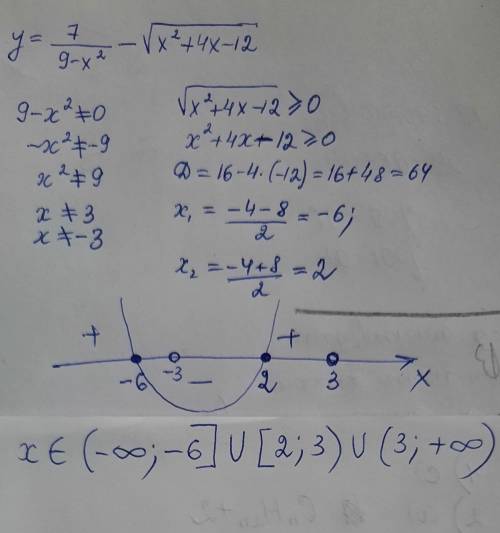 y = 7/(9-x²) - √(x²+4x-12)
9-x² ≠ 0
-x² ≠ -9
x² ≠ 9
x ≠ 3
x ≠ -3
√(x²+4x-12) ⩾ 0
x²+4x-12 ⩾ 0
D = 16-4·(-12) = 16+48 = 64
x₁ = (-4-8)/2 = -6;
x₂ = (-4+8)/2 = 2
+ - +
-6 -3 2 3 x
x ∈ (-∞; -6] ∪ [2; 3) ∪ (3; +∞)